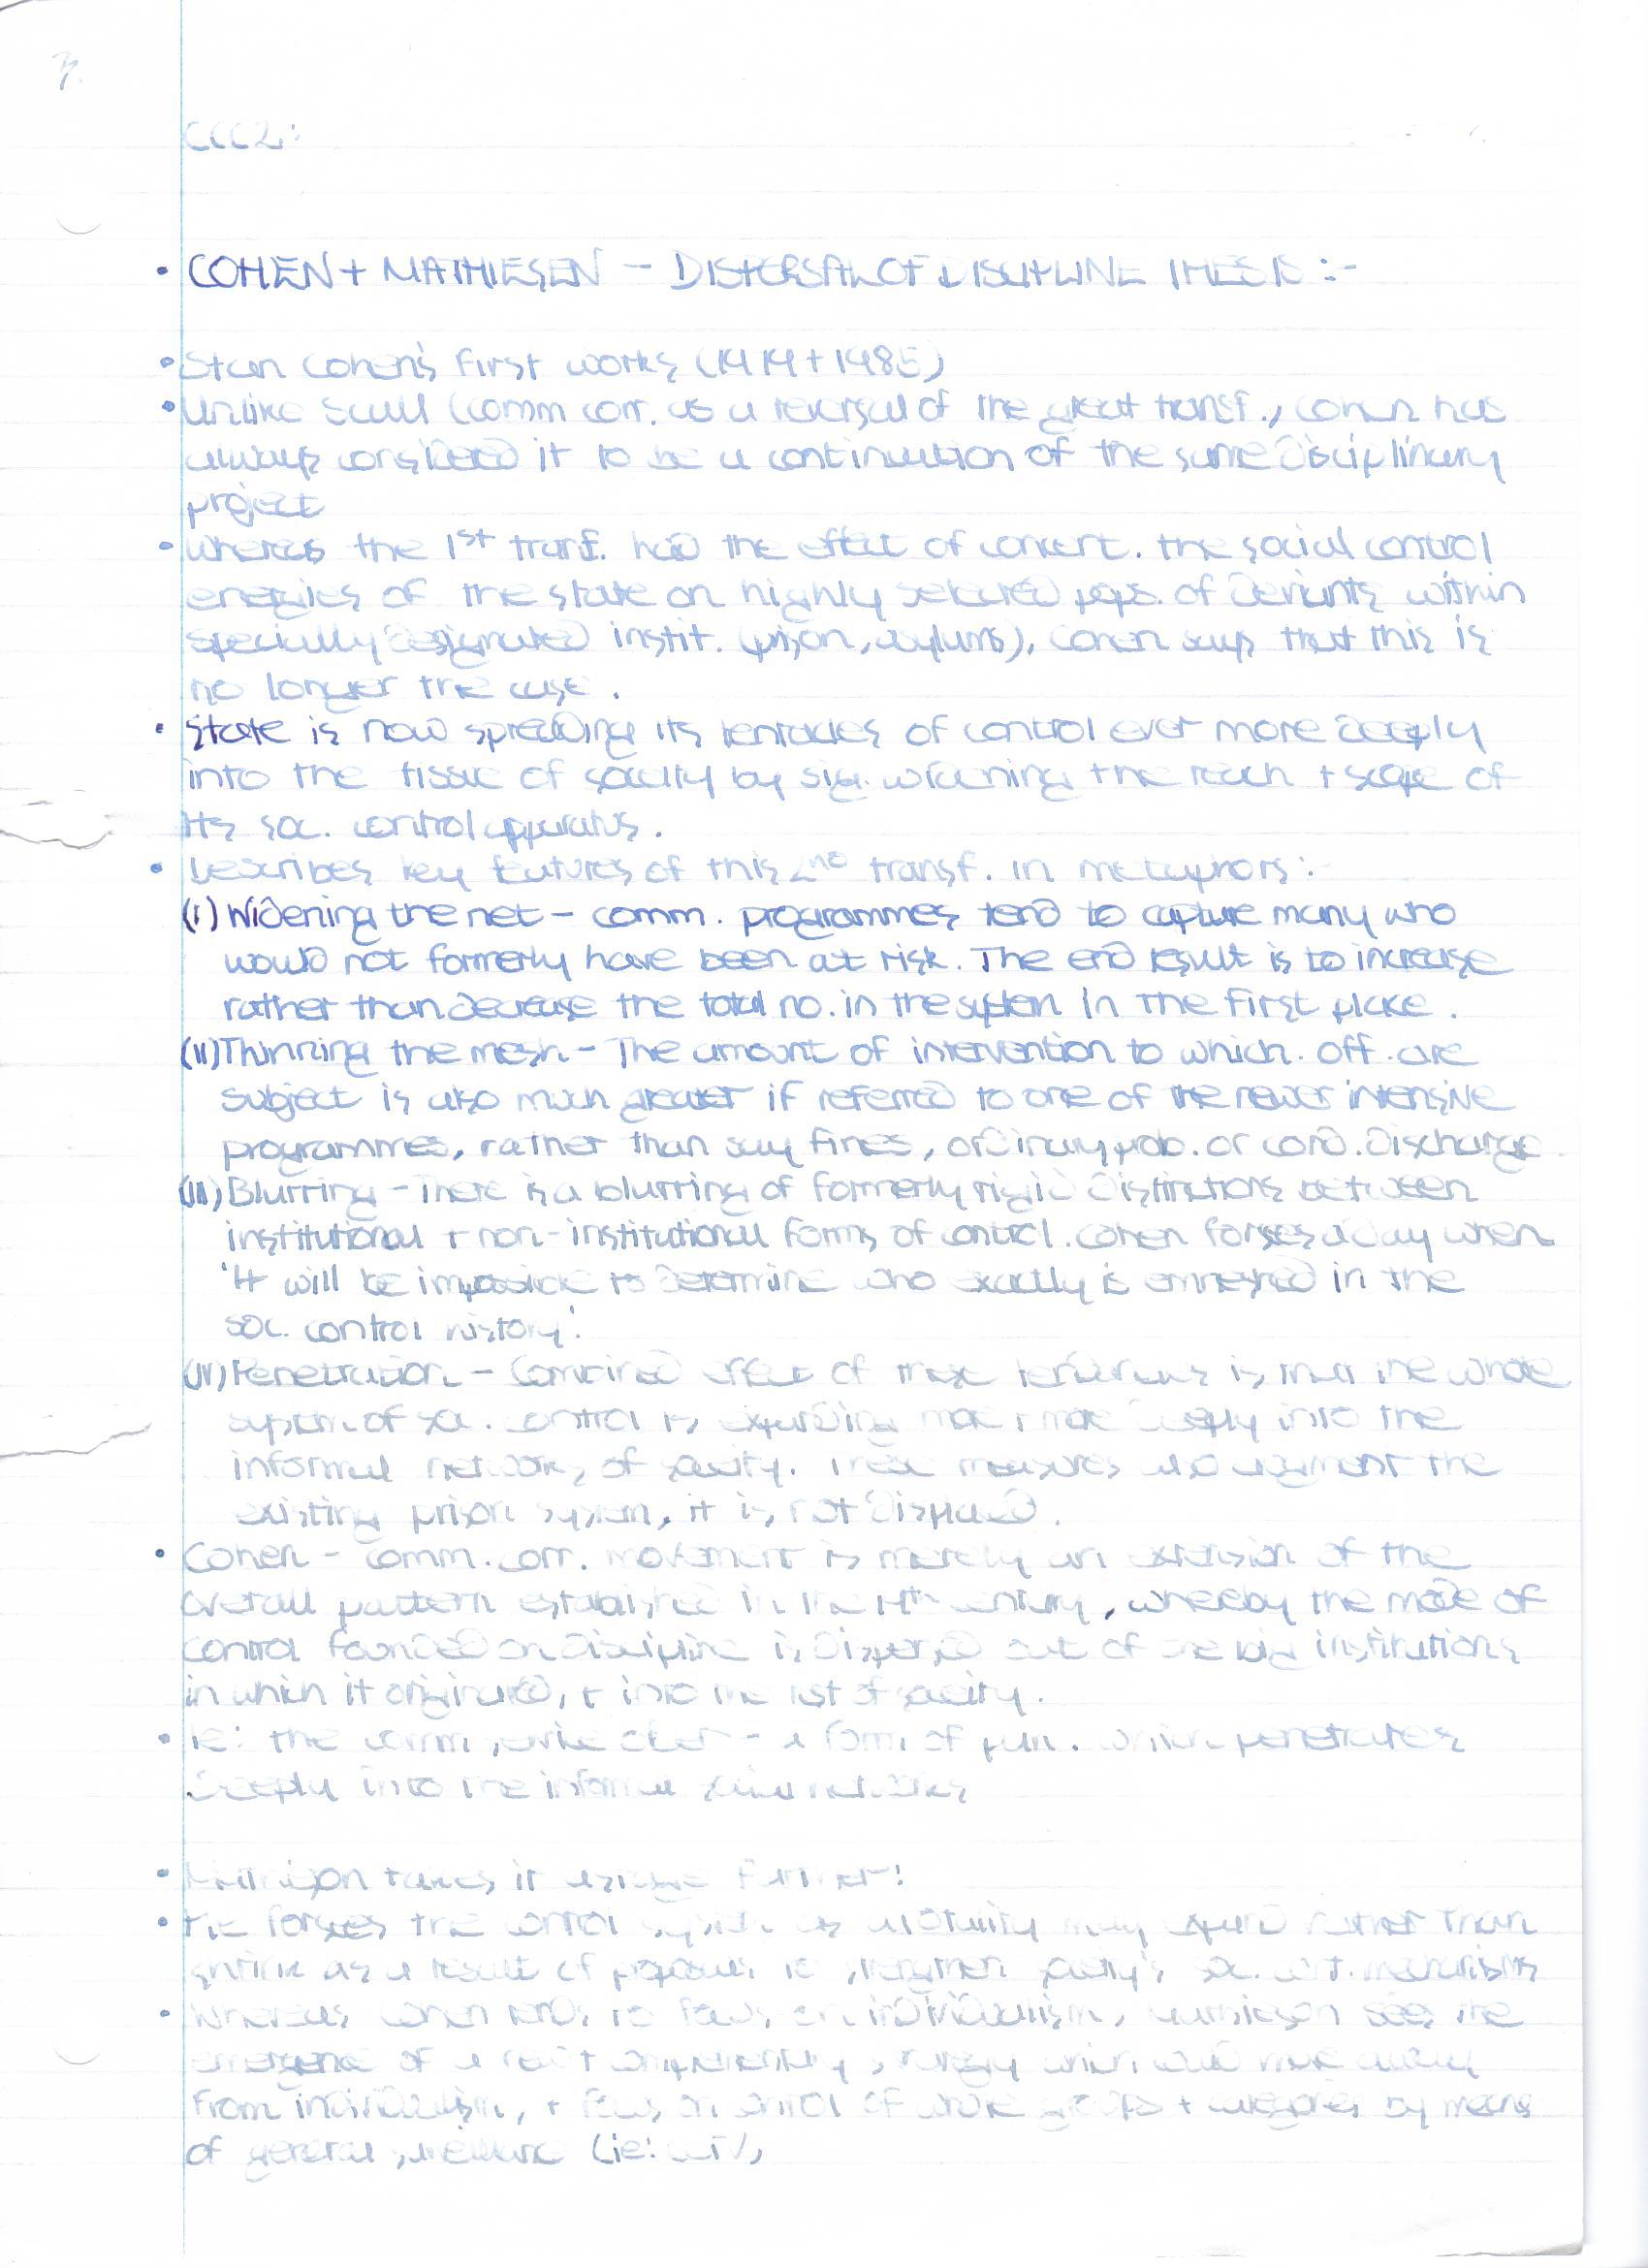 7.
CCC2:
• COHEN + MATHIESEN - DISPERSAL OF DISCIPLINE THESIS :-
• Stan Cohen's first works (1979 + 1985)
• Unlike Scull (comm corr. as a reversal of the great transf., Cohen has
always considered it to be a continuation of the same disciplinary
project
• Whereas the 1st transf. had the effect of concent. the social control
energies of the state on highly selected pops. of deviants within
specially designated instit. (prison, asylums), Cohen says that this is
no longer the case.
• State is now spreading its tentacles of control ever more deeply
into the tissue of society by sig. widening the reach + scope of
its soc. control apparatus.
• Describes key features of this 2nd transf. in metaphors:-
(i) Widening the net - comm. programmes tend to capture many who
would not formerly have been at risk. The end result is to increase
rather than decrease the total no. in the system in the first place.
(ii) Thinning the mesh - The amount of intervention to which. off. are
subject is also much greater if referred to one of the newer intensive
programmes, rather than say fines, ordinary prob. or cond. discharge.
(iii) Blurring - There is a blurring of formerly rigid distinctions between
institutional + non-institutional forms of control. Cohen forsees a day when
'it will be impossible to determine who exactly is enmeshed in the
soc. control history'.
(iv) Penetration - Combined effect of these tendencies is that the whole
system of soc. control is expanding more + more deeply into the
informal networks of society. These measures also augment the
existing prison system, it is not displaced.
• Cohen - comm. corr. movement is merely an extension of the
overall pattern established in the 19th century, whereby the mode of
control founded on discipline is dispersed out of the big institutions
in which it originated, + into the rest of society.
• ie: the comm service order - a form of pun. which penetrates
deeply into the informal social networks
• Mathieson takes it a stage further!
• He forsees the control system as a totality may expand rather than
shrink as a result of proposals to strengthen society's soc. cont. mechanisms
• Whereas Cohen tends to focus on individualism, Mathieson sees the
emergence of a new + complementary strategy which would move away
from individualism, + focus on control of whole groups + categories by means
of general surveillance (ie: CCTV)